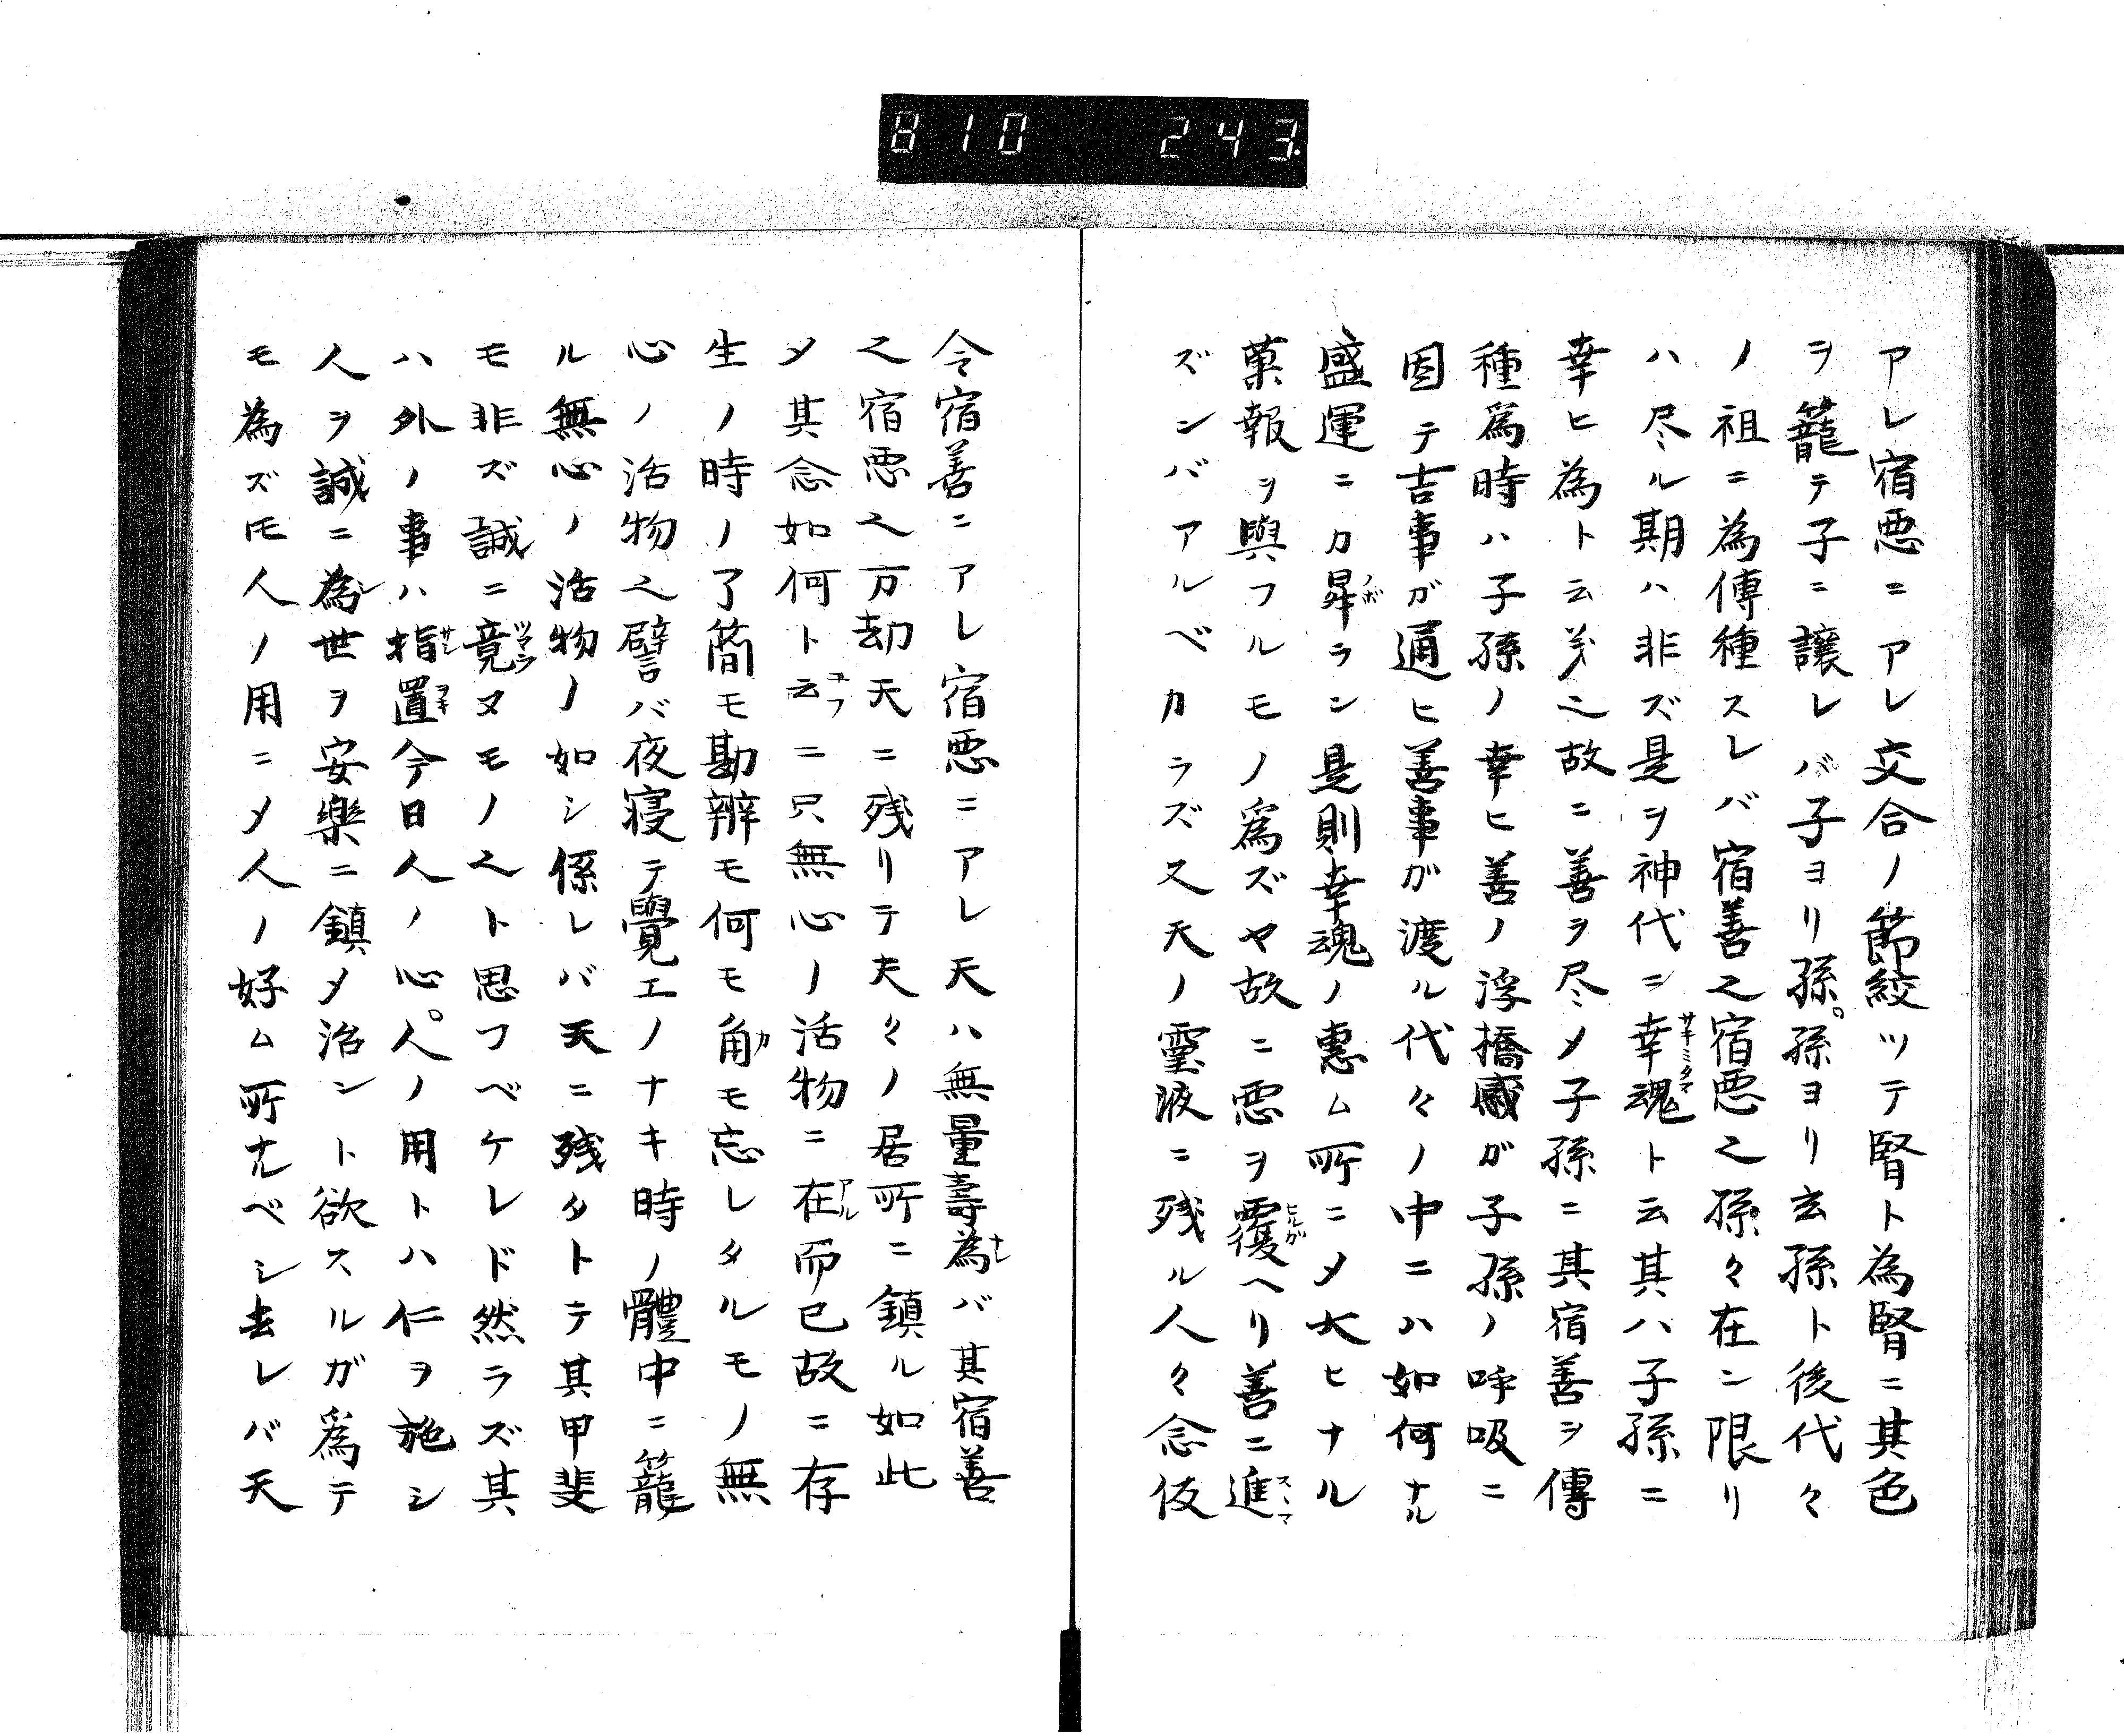 810 243.
アレ宿悪ニアレ交合ノ節絞ツテ腎ト為腎ニ其色
ヲ籠テ子ニ譲レバ子ヨリ孫。孫ヨリ玄孫ト後代々
ノ祖ニ為傳種スレバ宿善之宿悪之孫々在ン限リ
ハ尽ル期ハ非ズ是ヲ神代ニ幸魂サキミタマト云其ハ子孫ニ
幸ヒ為ト云義之故ニ善ヲ尽メ子孫ニ其宿善ヲ傳
種爲時ハ子孫ノ幸ヒ善ノ浮橋感ガ子孫ノ呼吸ニ
因テ吉事ガ通ヒ善事ガ渡ル代々ノ中ニハ如何ナル
盛運ニカ昇ノボラン是則幸魂ノ惠ム所ニメ大ヒナル
菓報ヲ與フルモノ爲ズヤ故ニ悪ヲ覆ヒルガヘリ善ニ進スヽマ
ズンバアルベカラズ又天ノ靈液ニ残ル人々念仮
令宿善ニアレ宿悪ニアレ天ハ無量壽為ナレバ其宿善
之宿悪之万劫天ニ残リテ夫々ノ居所ニ鎮ル如此
メ其念如何ト云フニ只無心ノ活物ニ在アル而已故ニ存
生ノ時ノ了簡モ勘辨モ何モ角カモ忘レタルモノ無
心ノ活物之譬バ夜寝テ覺エノナキ時ノ體中ニ籠
ル無心ノ活物ノ如シ係レバ天ニ残タトテ其甲斐
モ非ズ誠ニ竟ツマラヌモノ之ト思フベケレド然ラズ其
ハ外ノ事ハ指サシ置ヲキ今日人ノ心。人ノ用トハ仁ヲ施シ
人ヲ誠ニ為シ世ヲ安樂ニ鎮メ治ント欲スルガ爲テ
モ為ズ𪜈人ノ用ニメ人ノ好ム所尤ベシ去レバ天